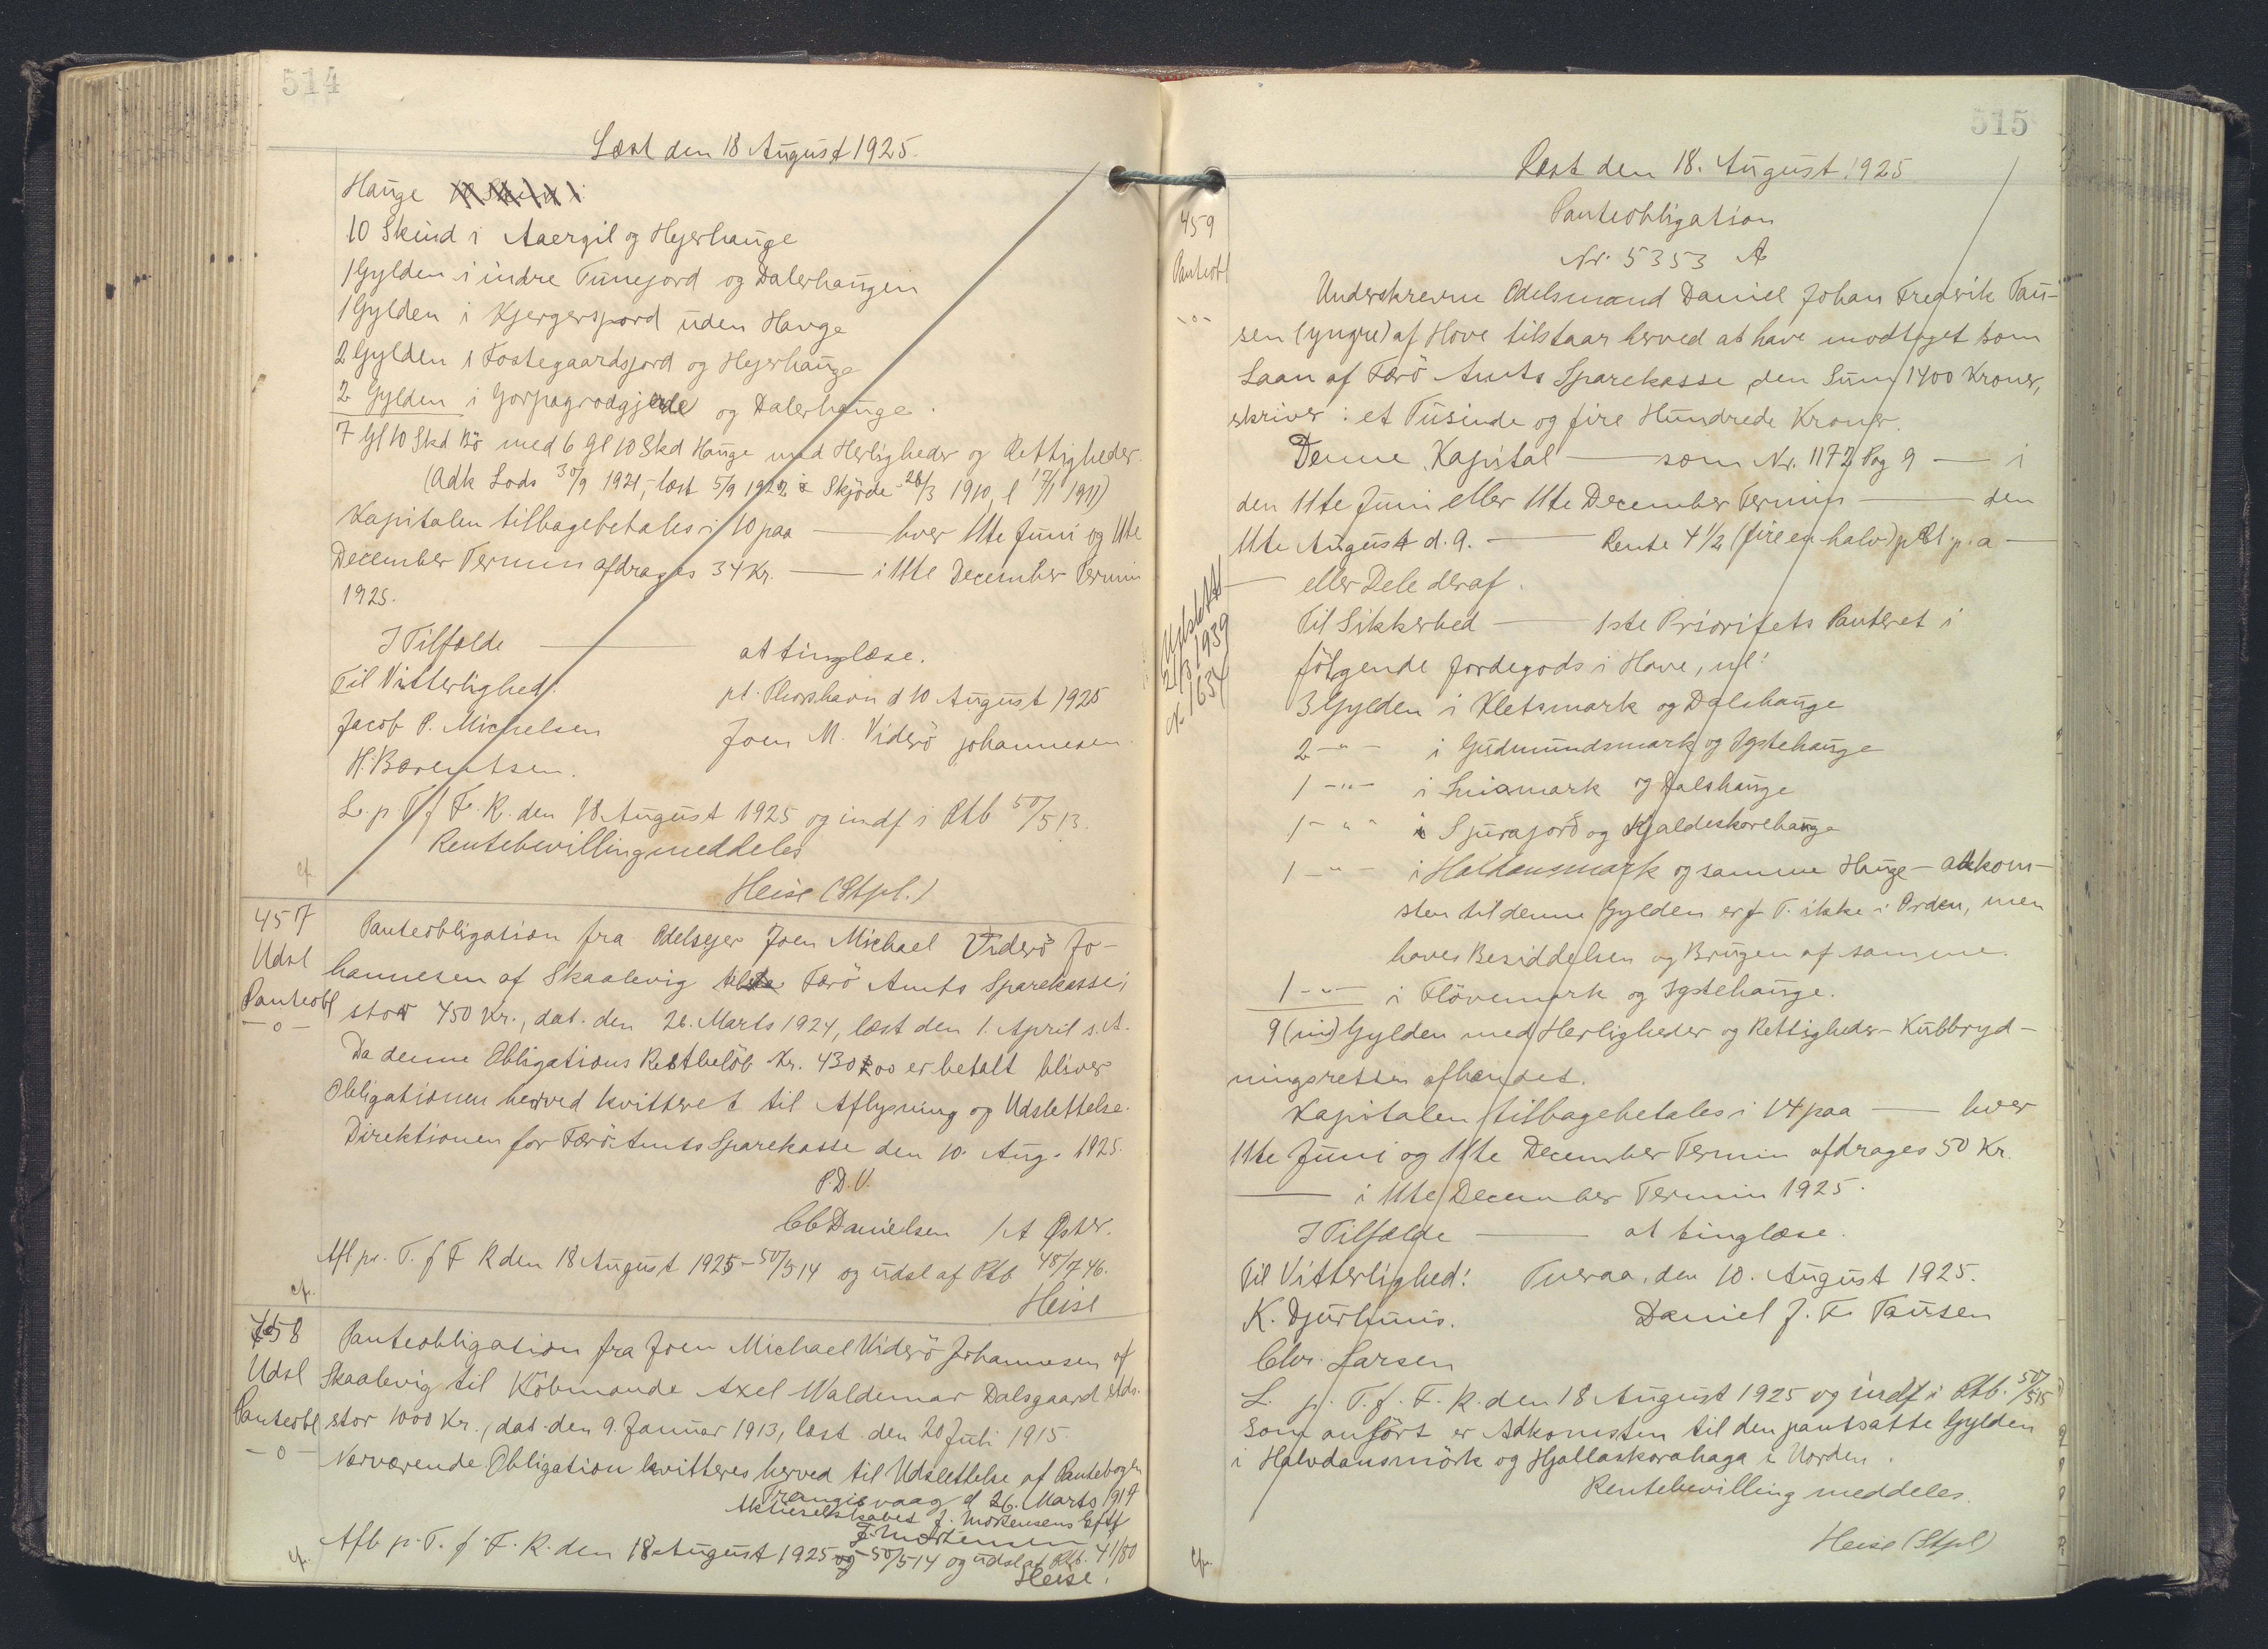 514
Læst den 18 August 1925.
Hauge
10 Skind i Aaergil og Hejerhauge
1 Gylden i indre Tunejord og Dalerhaugen
1 Gylden i Kjergersjord uden Hauge
2 Gylden i Tostegaardsjord og Hejerhauge
2 Gylden i Gorpagrodgjerde og Dalerhauge.
7 Gl 10 Skd Bö med 6 Gl 10 Skd Hauge med Herligheder og Rettigheder.
(Adk Lods 30/9 1921, læst 5/9 1922 & Skjöde 26/3 1910, l 17/1 1911)
Kapitalen tilbagebetales i 10 paa — hver 11te Juni og 11te
December Termin afdrages 34 Kr. — i 11te December Termin
1925.
I Tilfælde — at tinglæse.
Til Vitterlighed: pt. Thorshavn d 10 August 1925
Jacob P. Michelsen Joen M. Viderö Johannesen.
H. Barentsen.
L. p. T. f F. R. den 18 August 1925 og indf i Ptb 50/513.
Rentebevilling meddeles
Heise (Stpl.)
cf.
457
Udsl
Panteobl
—o—
Panteobligation fra Odelsejer Joen Michael Viderö Jo-
hannesen af Skaalevig til Færö Amts Sparekasse;
stor 450 Kr., dat. den 26. Marts 1924, læst den 1. April s. A.
Da denne Obligations Restbelöb Kr. 430,00 er betalt bliver
Obligationen herved kvitteret til Aflysning og Udslettelse.
Direktionen for Færö Amts Sparekasse den 10. Aug. 1925.
P.D.V.
CC Danielsen / A Øster.
Afl pr. T. f F R den 18 August 1925 – 50/514 og udsl af Ptb 48/746.
Heise
cf.
458
Udsl
Panteobl
—o—
Panteobligation fra Joen Michael Viderö Johannesen af
Skaalevig til Köbmand Axel Waldemar Dalsgaard stds.
stor 1000 Kr., dat. den 9. Januar 1913, læst den 20 Juli 1915.
Nærværende Obligation kvitteres herved til Udslettelse af Pantebogen
Trangisvaag d 26. Marts 1917
Aktieselskabet J. Mortensens Eftf
J. Mortensen
Afl. p. T. f. F. R. den 18 August 1925 50/514 og udsl af Ptb. 41/80
Heise.
cf.
515
Læst den 18. August 1925
459
Panteobl
-o-
Panteobligation
Nr. 5353 A
Underskrevne Odelsmand Daniel Johan Frederik Tau-
sen (yngre) af Hove tilstaar herved at have modtaget som
Laan af Færö Amts Sparekasse den Sum 1400 Kroner,
skriver: et Tusinde og fire Hundrede Kroner.
Denne Kapital — som Nr. 1172 Pag 9 — i
den 11te Juni eller 11te December Termin — den
11te August d. A. — Rente 4 1/2 (fire en halv) pCt p. a —
— eller Dele deraf.
Til Sikkerhed — 1ste Prioritets Panteret i
fölgende Jordegods i Hove, nl:
3 Gylden i Kletsmark og Dalshauge
2 -"- i Gudmundsmark og Igstehauge
1 -"- i Sniamark og Dalshauge
1 -"- i Sjurajord og Kjaldeskorehauge
1 -"- i Haldansmark og samme Hauge – adkom-
sten til denne Gylden er f T. ikke i Orden, men
haves Besiddelsen og Brugen af samme.
1 -"- i Flövemark og Igstehauge.
9 (ni) Gylden med Herligheder og Rettigheder – Kubbryd-
ningsretten afhændet.
Kapitalen tilbagebetales i 14 paa — hver
11te Juni og 11te December Termin afdrages 50 Kr.
— i 11te December Termin 1925.
I Tilfælde — at tinglæse.
Til Vitterlighed: Tveraa, den 10. August 1925.
K. Djurhuus. Daniel J. F. Tausen
Chr. Larsen
L. p. T. f. F. R. den 18 August 1925 og indf i Ptb. 50/515
Som anfört er Adkomsten til den pantsatte Gylden
i Halvdansmörk og Hjallaskorahaga i Uorden.
Rentebevilling meddeles.
Heise (Stpl)
cf.
Udslettet
2/3 1939
N. 1634